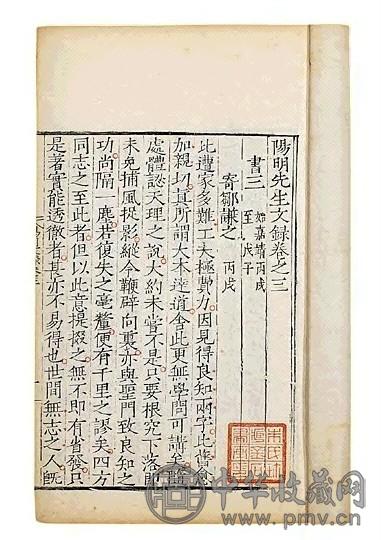 陽明先生文録卷之三
書三 始嘉靖丙戌至戊子
寄鄒謙之 丙戌
比遭家多難工夫極費力因見得良知兩字比舊愈
加親切真所謂大本達道舍此更無學問可講矣隨
處體認天理之說大約未嘗不是只要根究下落即
未免捕風捉影縱令鞭辟向裏亦與聖門致良知之
功尚隔一塵若復失之毫釐便有千里之謬矣四方
同志之至此者但以此意提掇之無不即有省發只
是著實能透徹者甚亦不易得也世間無志之人既
中华收藏网
www.pmv.cn